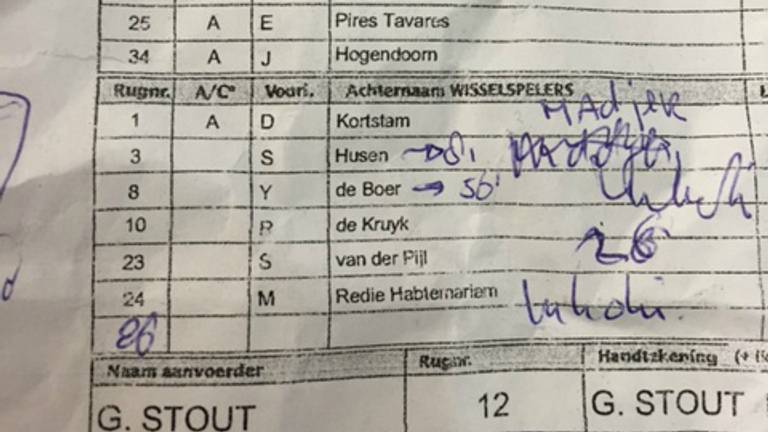 25 A E Pires Tavares
34 A J Hogendoorn
Rugnr. A/C* Voorl. Achternaam WISSELSPELERS
1 A D Kortstam MAdjer
3 S Husen
8 Y de Boer → 56'
10 R de Kruyk
23 S van der Pijl 26
24 M Redie Habtemariam
26
Naam aanvoerder Rugnr. Handtekening
G. STOUT 12 G. STOUT